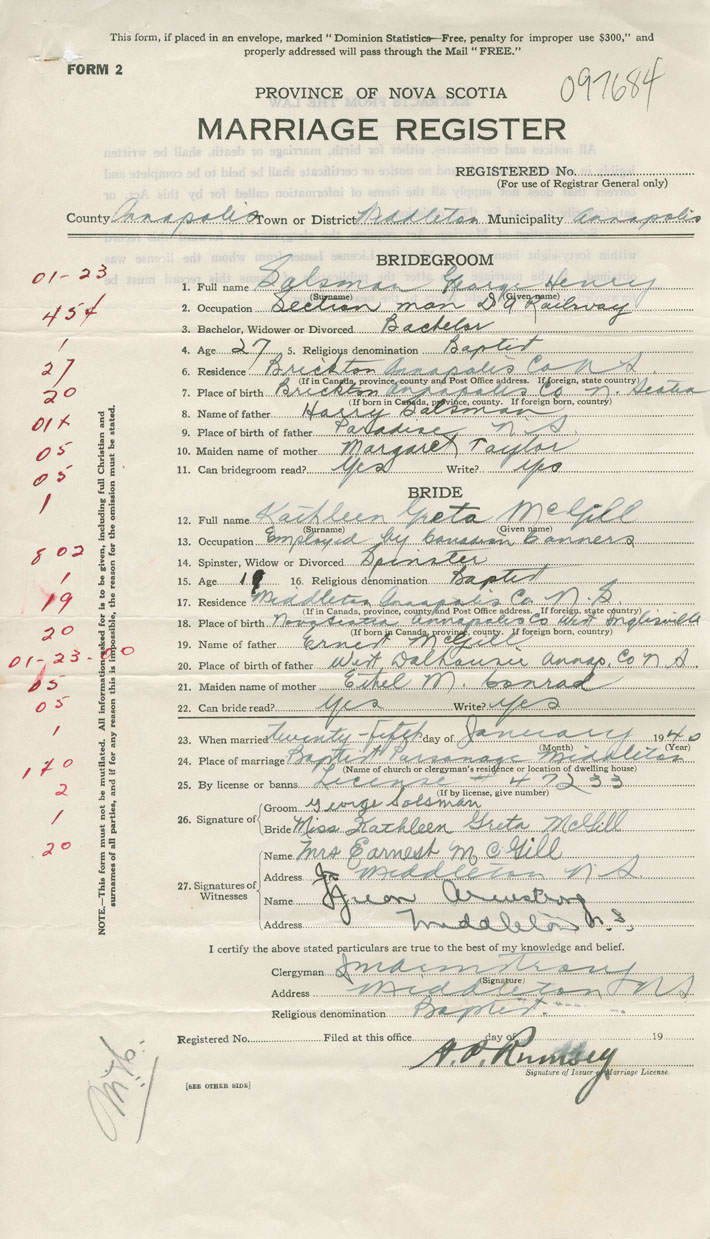 This form, if placed in an envelope, marked " Dominion Statistics—Free, penalty for improper use $300," and
properly addressed will pass through the Mail " FREE."
FORM 2
097684
PROVINCE OF NOVA SCOTIA
MARRIAGE REGISTER
REGISTERED No.
(For use of Registrar General only)
County Annapolis Town or District Middleton Municipality Annapolis
BRIDEGROOM
01-23
1. Full name Salsman George Henry
(Surname) (Given name)
2. Occupation Section man D A Railway
45
3. Bachelor, Widower or Divorced Bachelor
1
4. Age 27 5. Religious denomination Baptist
27
6. Residence Brickton Annapolis Co N S.
(If in Canada, province, county and Post Office address. If foreign, state country)
20
7. Place of birth Brickton Annapolis Co N. Scotia
(If born in Canada, province, county. If foreign born, country)
8. Name of father Harry Salsman
9. Place of father Paradise N.S.
05
10. Maiden name of mother Margaret Taylor
05
11. Can bridegroom read? Yes Write? Yes
1
BRIDE
12. Full name Kathleen Greta McGill
(Surname) (Given name)
13. Occupation Employed by Canadian Canners
802
14. Spinster, Widow or Divorced Spinster
1
15. Age 19 16. Religious denomination Baptist
19
17. Residence Middleton Annapolis Co N. S.
(If in Canada, province, county and Post Office address. If foreign, state country)
20
18. Place of birth Nova Scotia Annapolis Co West Inglisville
(If born in Canada, province, county. If foreign born, country)
19. Name of father Ernest McGill
01-23-00
20. Place of birth of father West Dalhousie Annap. Co N S.
05
21. Maiden name of mother Ethel M. Conrad
05
22. Can bride read? Yes Write? Yes
1
23. When married twenty-fifth day of January 1940
(Month) (Year)
24. Place of marriage Baptist Parsonage Middleton
(Name of church or clergyman's residence or location of dwelling house)
170
25. By license or banns License # 47233
(If by license, give number)
2
26. Signature of Groom George Salsman
1
Bride Miss Kathleen Greta McGill
20
27. Signatures of Witnesses
Name Mrs Earnest McGill
Address Middleton N S
Name Armstrong
Address Middleton N. S.
NOTE.—This form must not be mutilated. All information asked for is to be given, including full Christian and
surnames of all parties, and if for any reason this is impossible, the reason for the omission must be stated.
I certify the above stated particulars are true to the best of my knowledge and belief.
Clergyman Armstrong
(Signature)
Address Middleton N S
Religious denomination Baptist
Registered No. Filed at this office day of 19
A. P. Rumsey
Signature of Issuer of Marriage License.
[SEE OTHER SIDE]